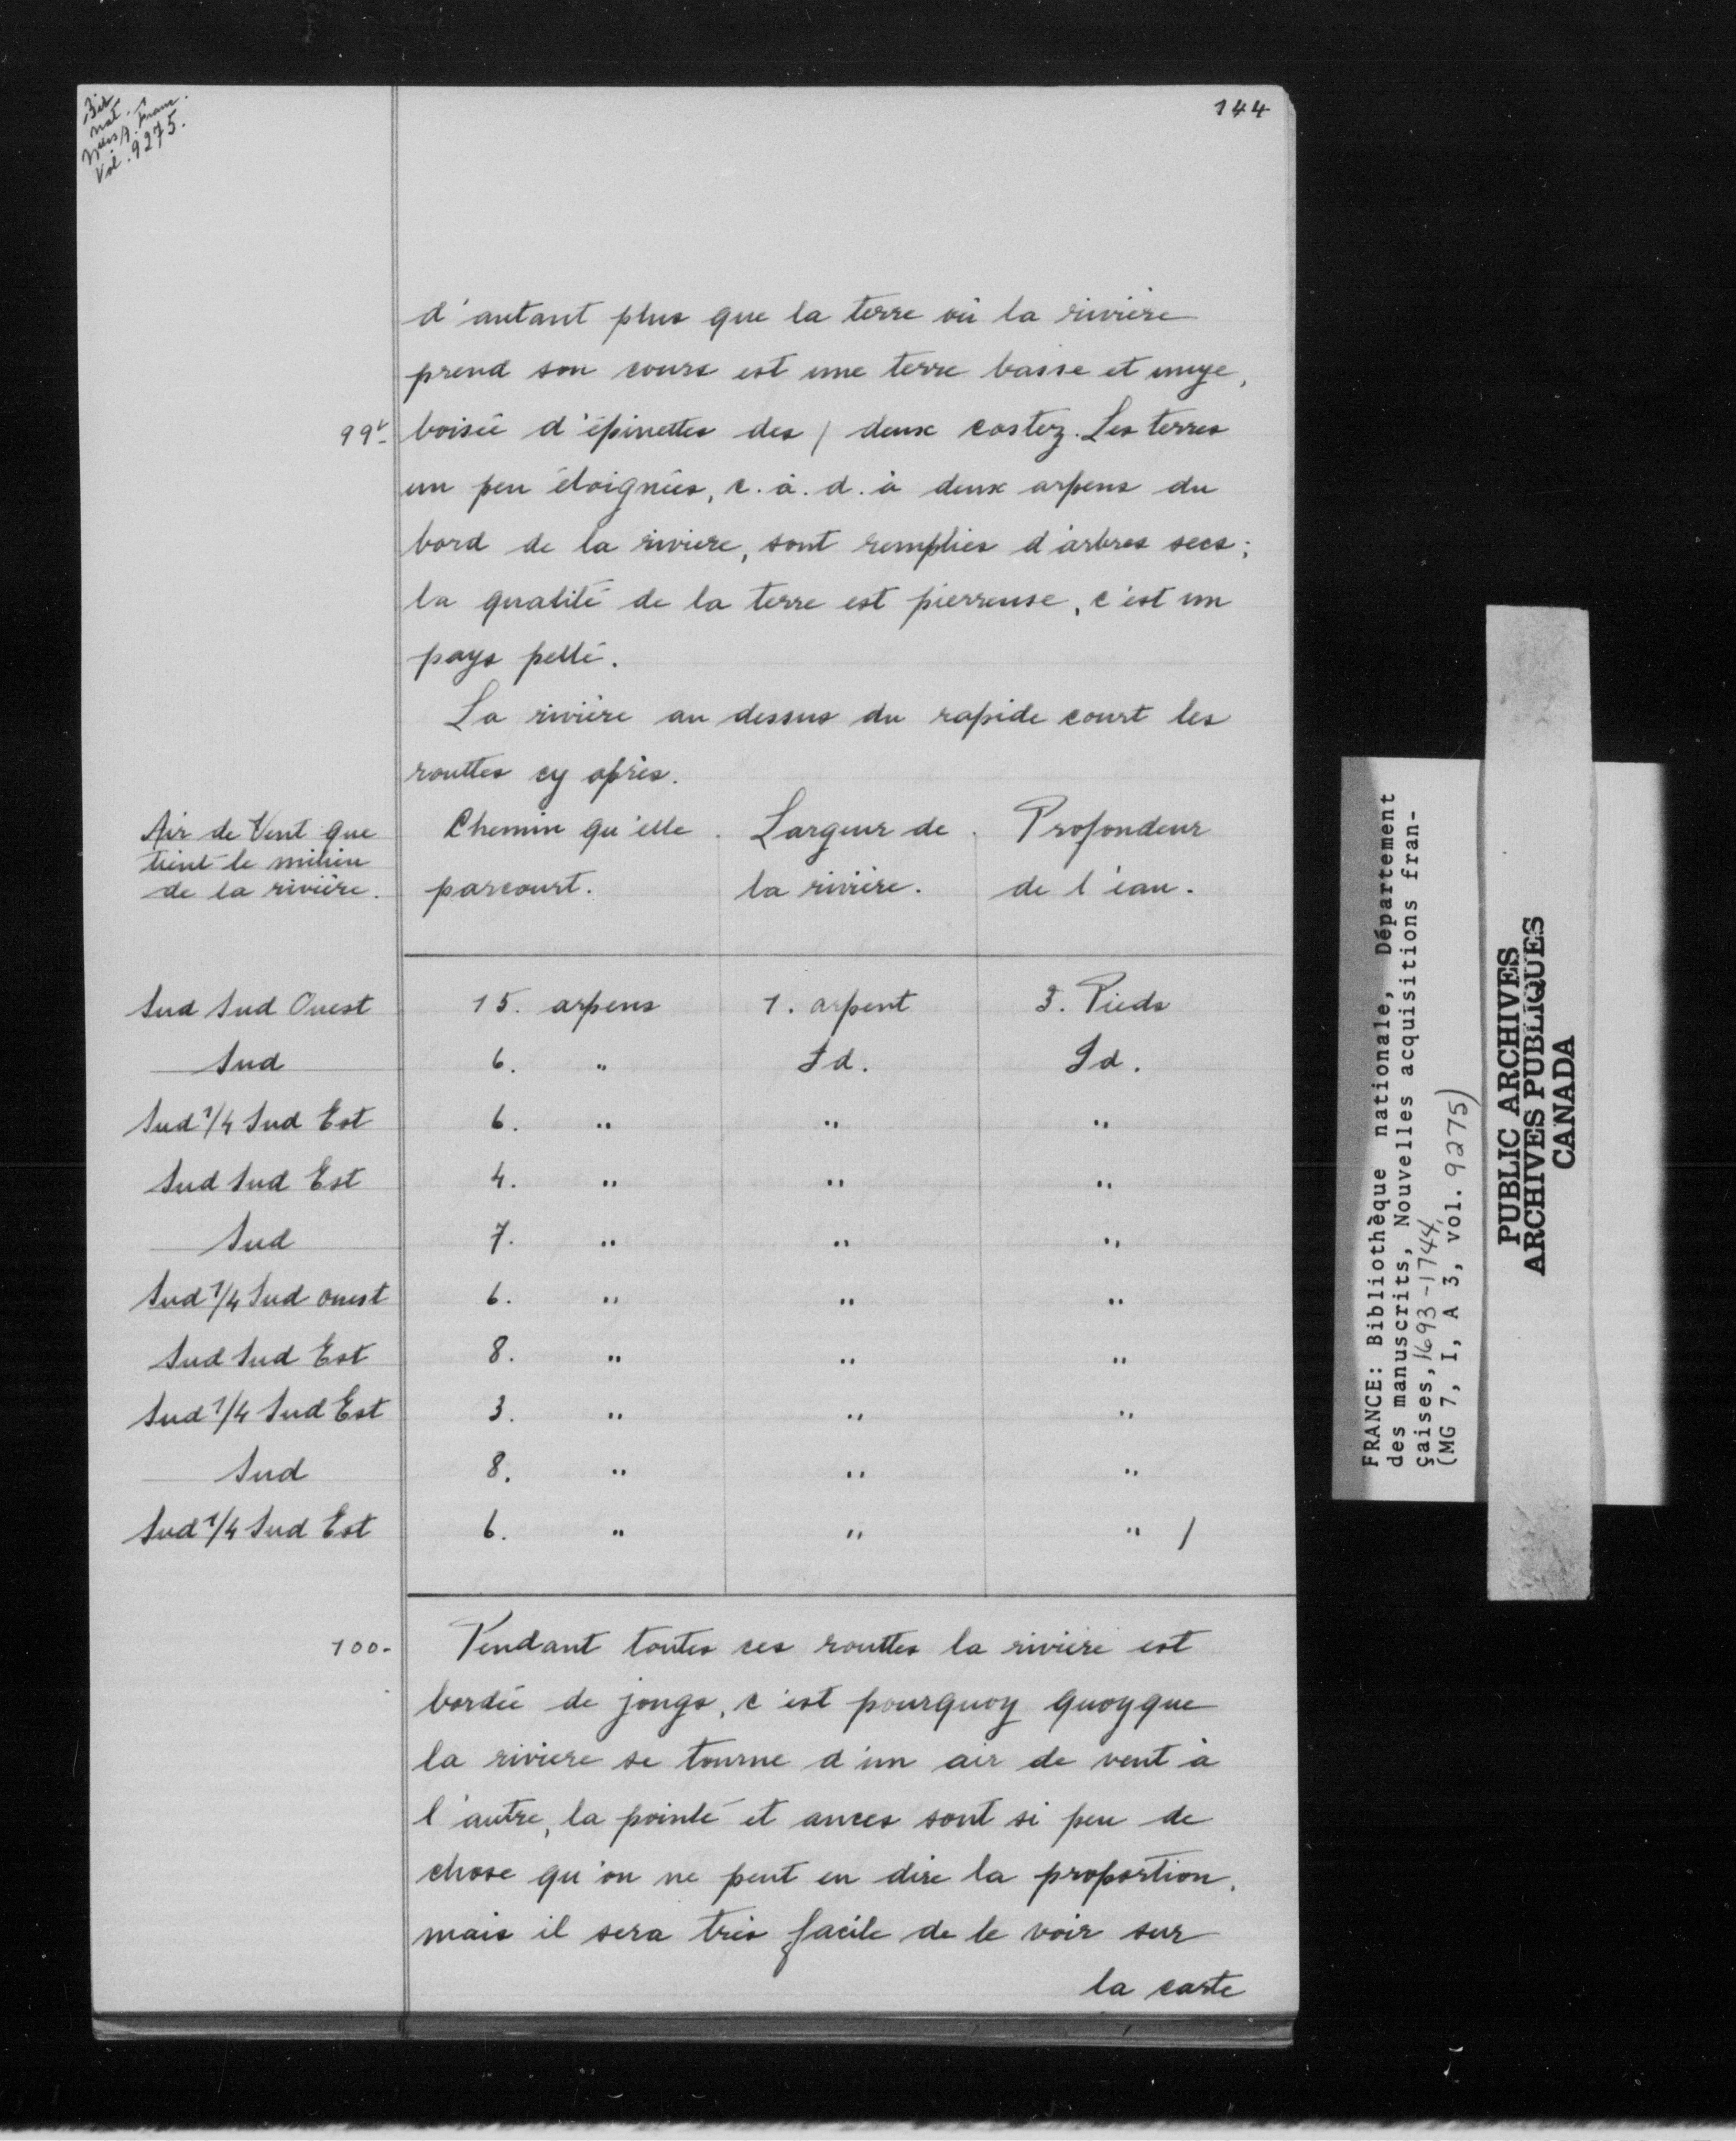 Bib.
nat.
Nelles A. Franc.
Vol. 9275.
144
d'autant plus que la terre où la rivière
prend son cours est une terre basse et unye,
99v- boisée d'épinettes des / deux costez. Les terres
un peu éloignées, c. à. d. à deux arpens du
bord de la riviere, sont remplies d'arbres secs;
la qualité de la terre est pierreuse, c'est un
pays pellé.
La rivière au dessus du rapide court les
routtes cy après.
Air de Vent que
tient le milieu
de la rivière.
Chemin qu'elle
parcourt.
Largeur de
la rivière.
Profondeur
de l'eau.
Sud Sud Ouest 15. arpens 1. arpent 3. Pieds
Sud 6. " Id. Id.
Sud 1/4 Sud Est 6. " " "
Sud Sud Est 4. " " "
Sud 7. " " "
Sud 1/4 Sud ouest 6. " " "
Sud Sud Est 8. " " "
Sud 1/4 Sud Est 3. " " "
Sud 8. " " "
Sud 1/4 Sud Est 6. " " " /
100- Pendant toutes ces routtes la rivière est
bordée de jongs, c'est pourquoy quoyque
la riviere se tourne d'un air de vent à
l'autre, la pointe et ances sont si peu de
chose qu'on ne peut en dire la proportion,
mais il sera très facile de le voir sur
la carte
FRANCE: Bibliothèque nationale, Département
des manuscrits, Nouvelles acquisitions fran-
çaises, 1693-1744
(MG 7, I, A 3, vol. 9275)
PUBLIC ARCHIVES
ARCHIVES PUBLIQUES
CANADA